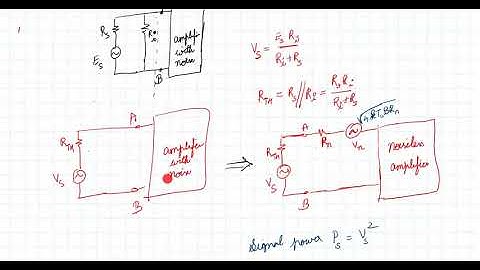 R_S
R_i
E_S
B
amplifier
with
noise
V_S = E_S R_i / R_i+R_S
R_TH = R_S // R_i = R_S R_i / R_i+R_S
A
R_TH
V_S
B
amplifier
with
noise
⇒
A
R_n
V_n
√4KT_0BR_n
R_TH
V_S
B
Noiseless
amplifier
Signal power P_S = V_S^2